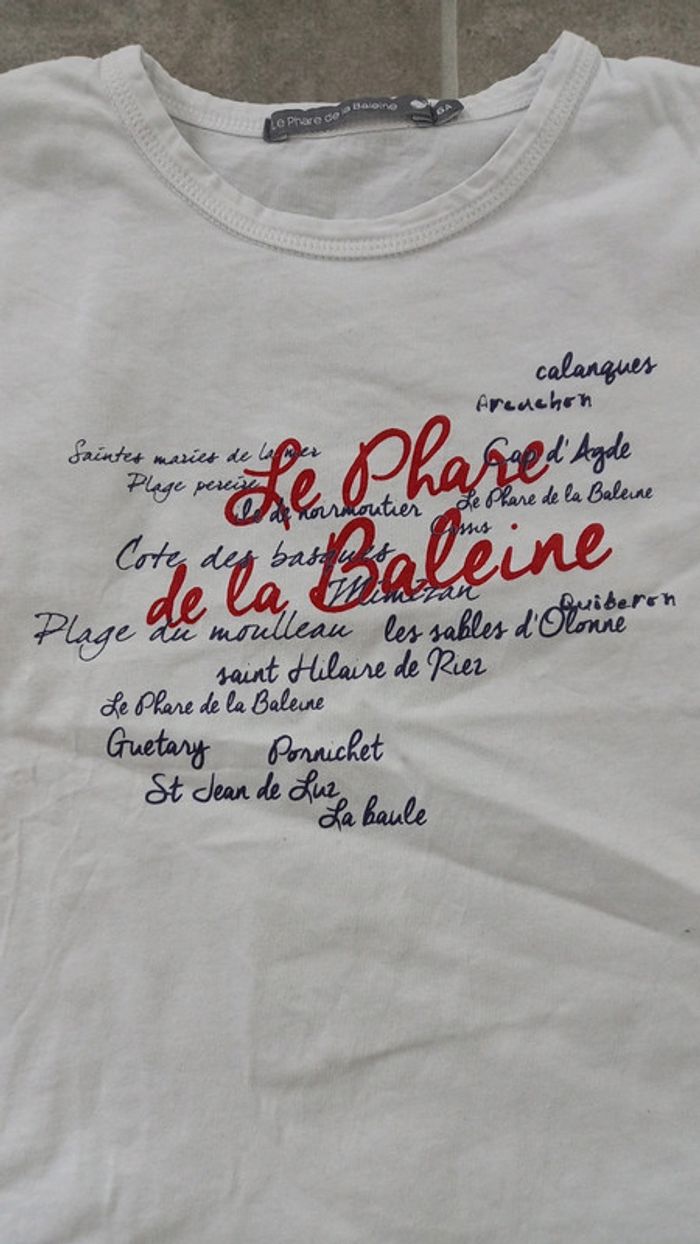 Le Phare de la Baleine
6A
calanques
Arcachon
Saintes maries de la mer
Le Phare
Cap d'Agde
Plage pereire
Le Phare de la Baleine
ile de noirmoutier
Cassis
Cote des basques
de la Baleine
Mimizan
Quiberon
Plage du moulleau
les sables d'Olonne
saint Hilaire de Riez
Le Phare de la Baleine
Guetary
Pornichet
St Jean de Luz
La baule